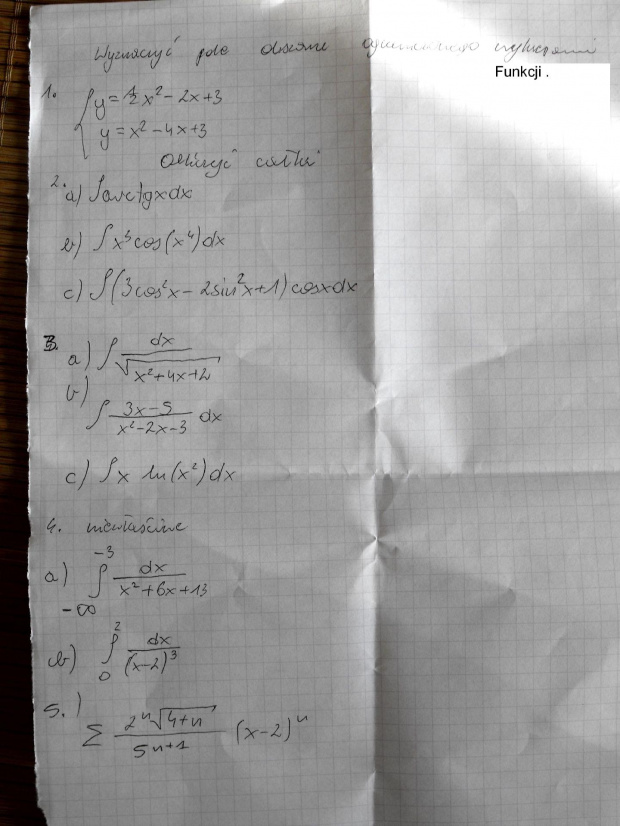 Wyznaczyć pole obszaru ograniczonego wykresami
Funkcji .
1. { y = ½x² - 2x + 3
y = x² - 4x + 3
Obliczyć całki
2. a) ∫ arctgx dx
b) ∫ x³ cos(x⁴) dx
c) ∫ (3cos²x - 2sin²x + 1) cosx dx
3. a) ∫ dx / √(x² + 4x + 2)
b) ∫ (3x - 5) / (x² - 2x - 3) dx
c) ∫ x ln(x²) dx
4. niewłaściwe
a) ∫_{-∞}^{-3} dx / (x² + 6x + 13)
b) ∫_{0}^{2} dx / (x - 2)³
5.) Σ 2ⁿ√(4+n) / 5ⁿ⁺¹ (x - 2)ⁿ